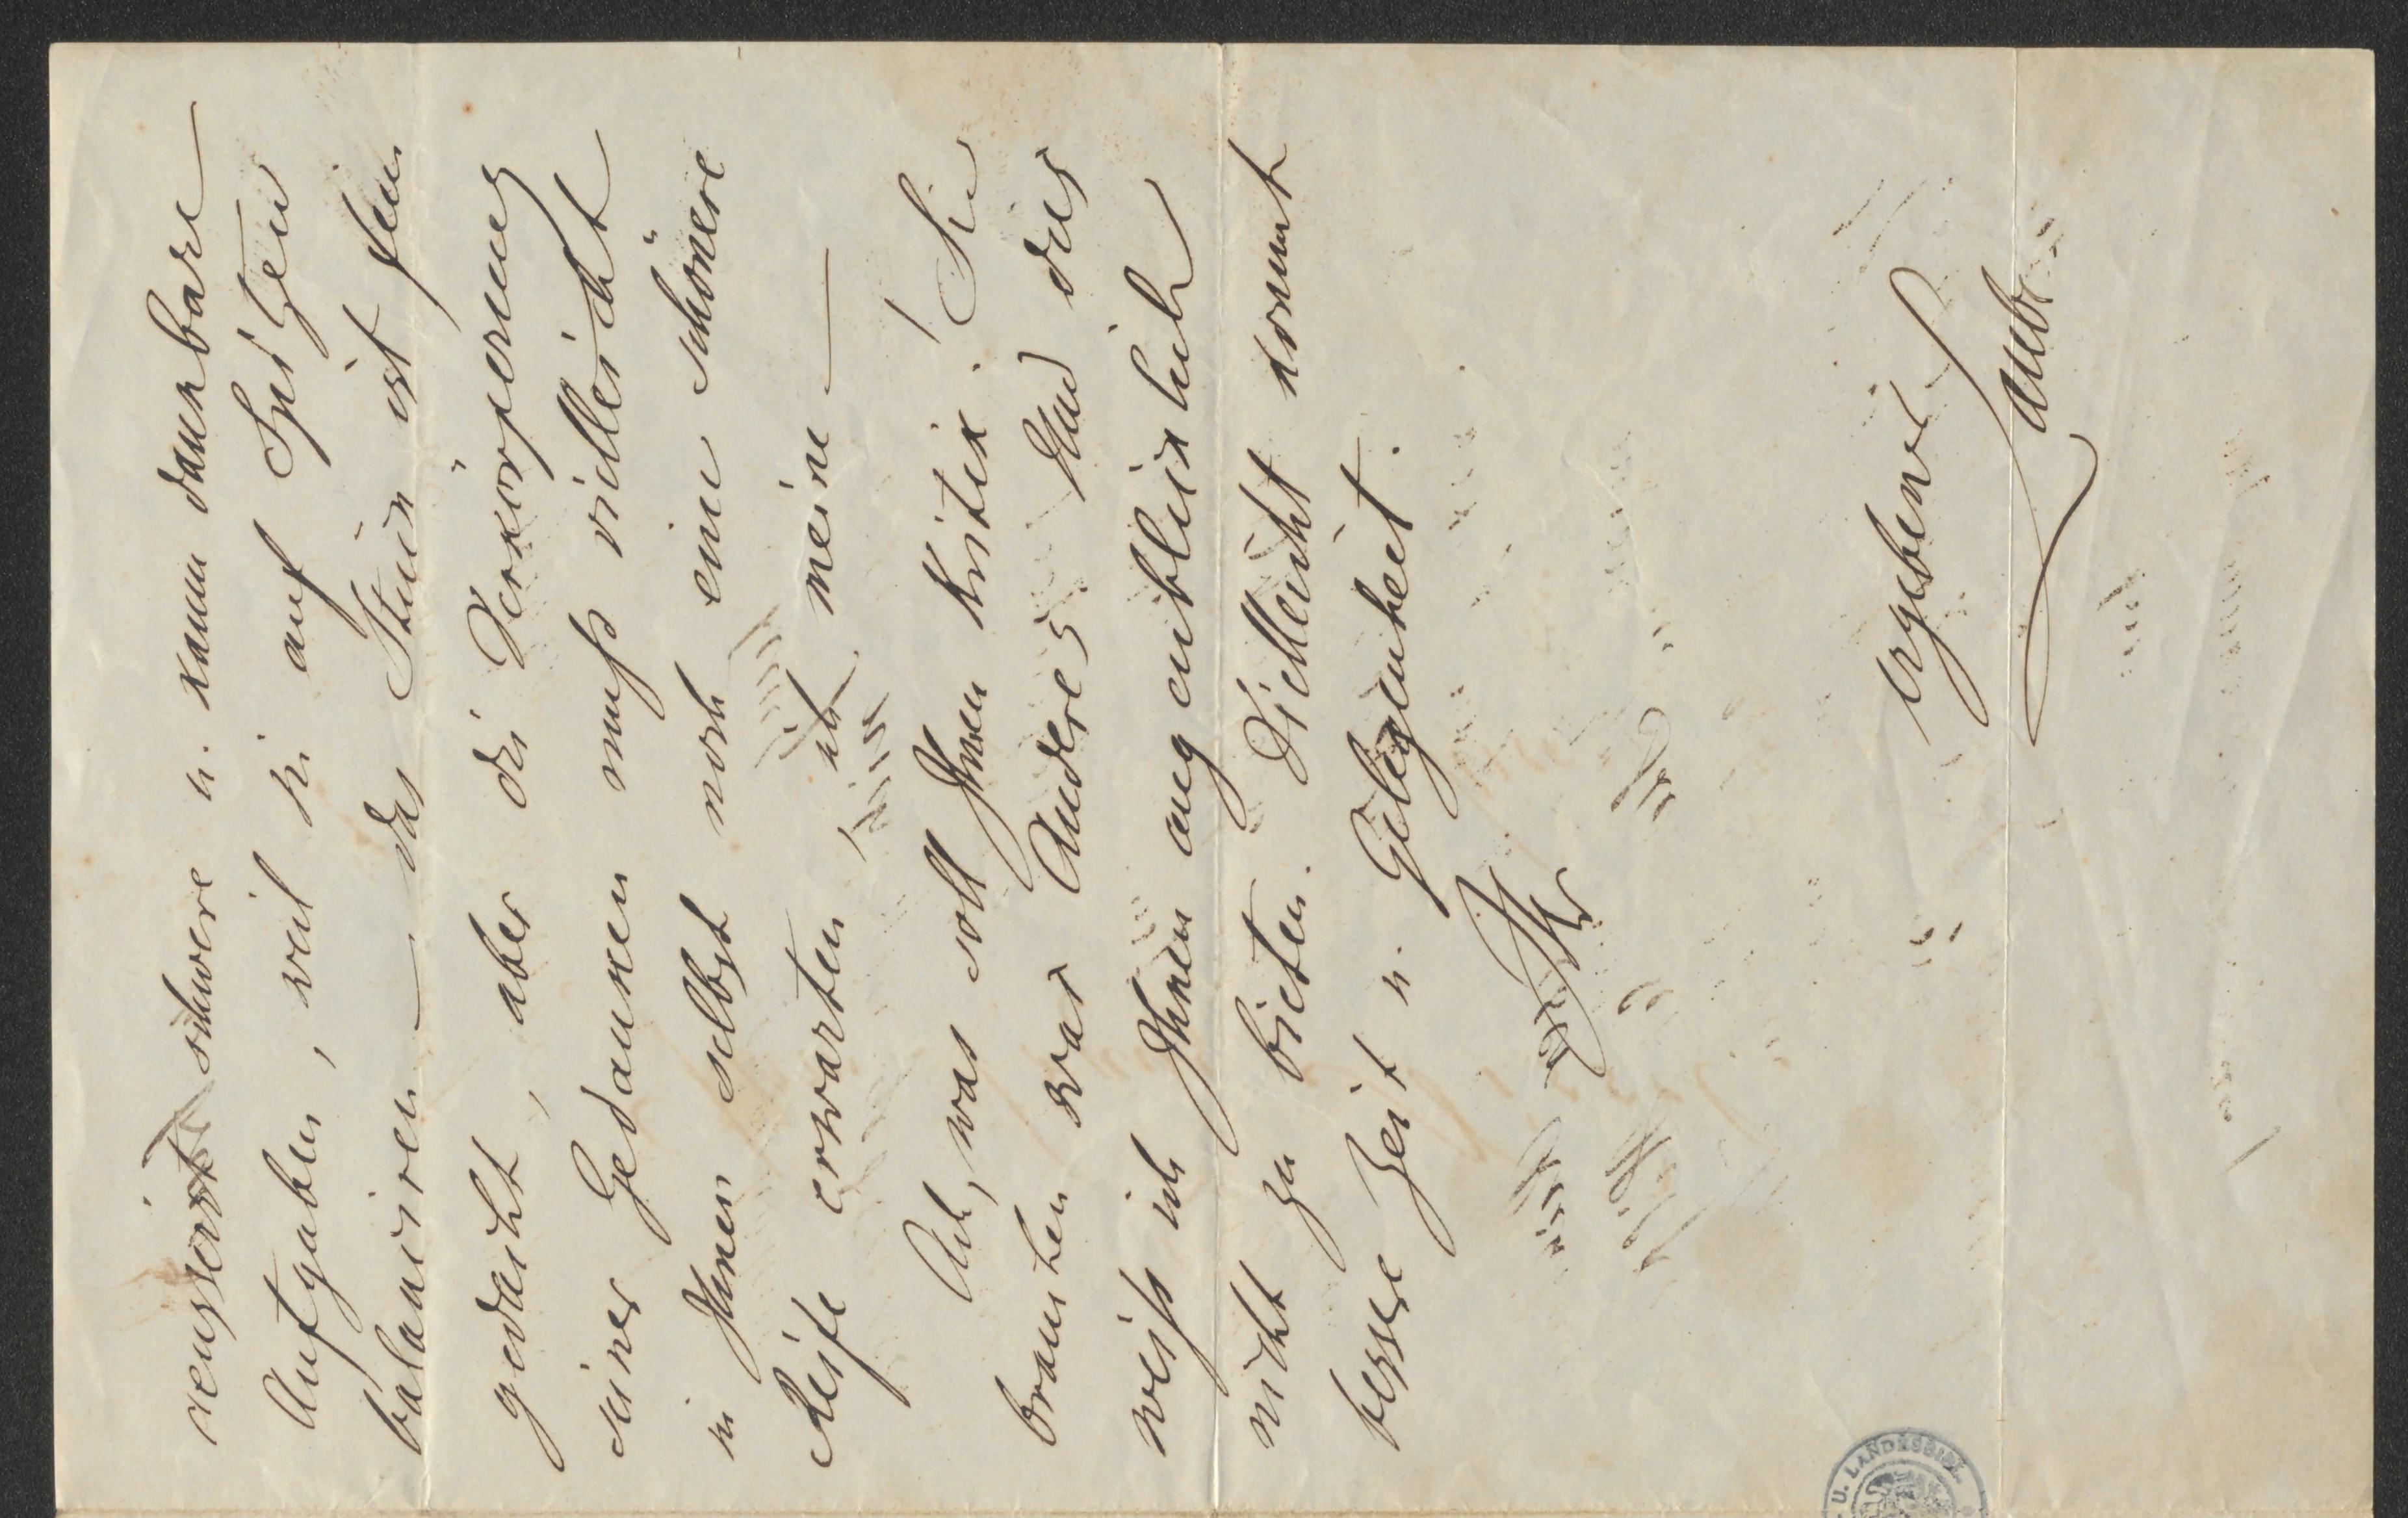 schwere u. kaum dankbare
Aufgaben, weil sie auf Spitzen
balanciren — das Stück ist fein
gedacht, aber die Verkörperung
seiner Gedanken muß vielleicht
in Ihnen selbst noch eine schönere
Reife erwarten, ich meine —
Ach, was soll Ihnen Kritik! Sie
brauchen was Anderes. Und das
weiß ich Ihnen augenblicklich
nicht zu bieten. Vielleicht kommt
bessre Zeit u. Gelegenheit.
Ihr
ergebenst
Laube
U. LANDESBIBL